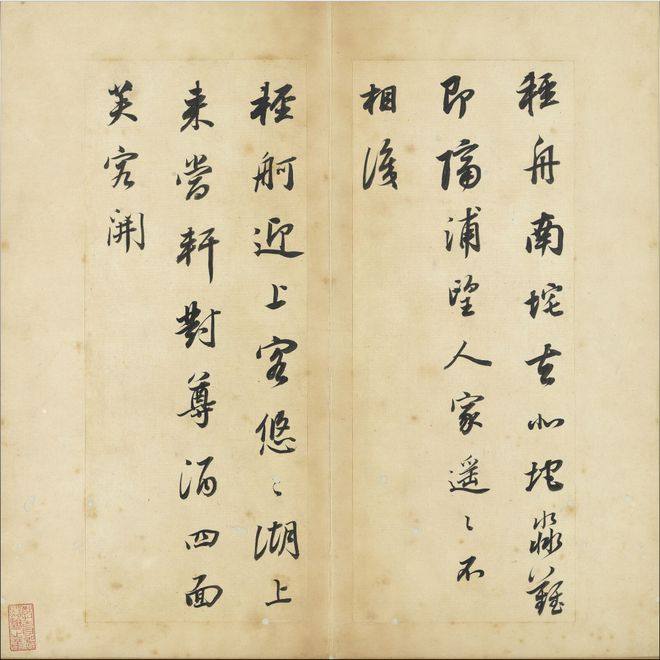 輕舟南垞去北垞淼難
即隔浦望人家遙〻不
相識
輕舸迎上客悠〻湖上
來當軒對尊酒四面
芙容開